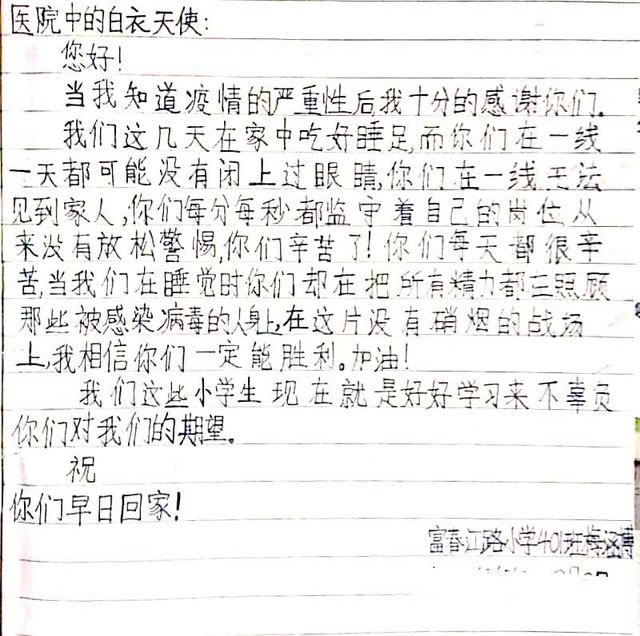 医院中的白衣天使:
您好!
当我知道疫情的严重性后,我十分的感谢你们.
我们这几天在家中吃好睡足,而你们在一线
一天都可能没有闭上过眼睛,你们在一线无法
见到家人,你们每分每秒都监守着自己的岗位从
来没有放松警惕,你们辛苦了!你们每天都很辛
苦,当我们在睡觉时你们却在把所有精力都在照顾
那些被感染病毒的人身上,在这片没有硝烟的战场
上,我相信你们一定能胜利。加油!
我们这些小学生现在就是好好学习来不辜负
你们对我们的期望。
祝
你们早日回家!
富春江路小学401班梅涵博